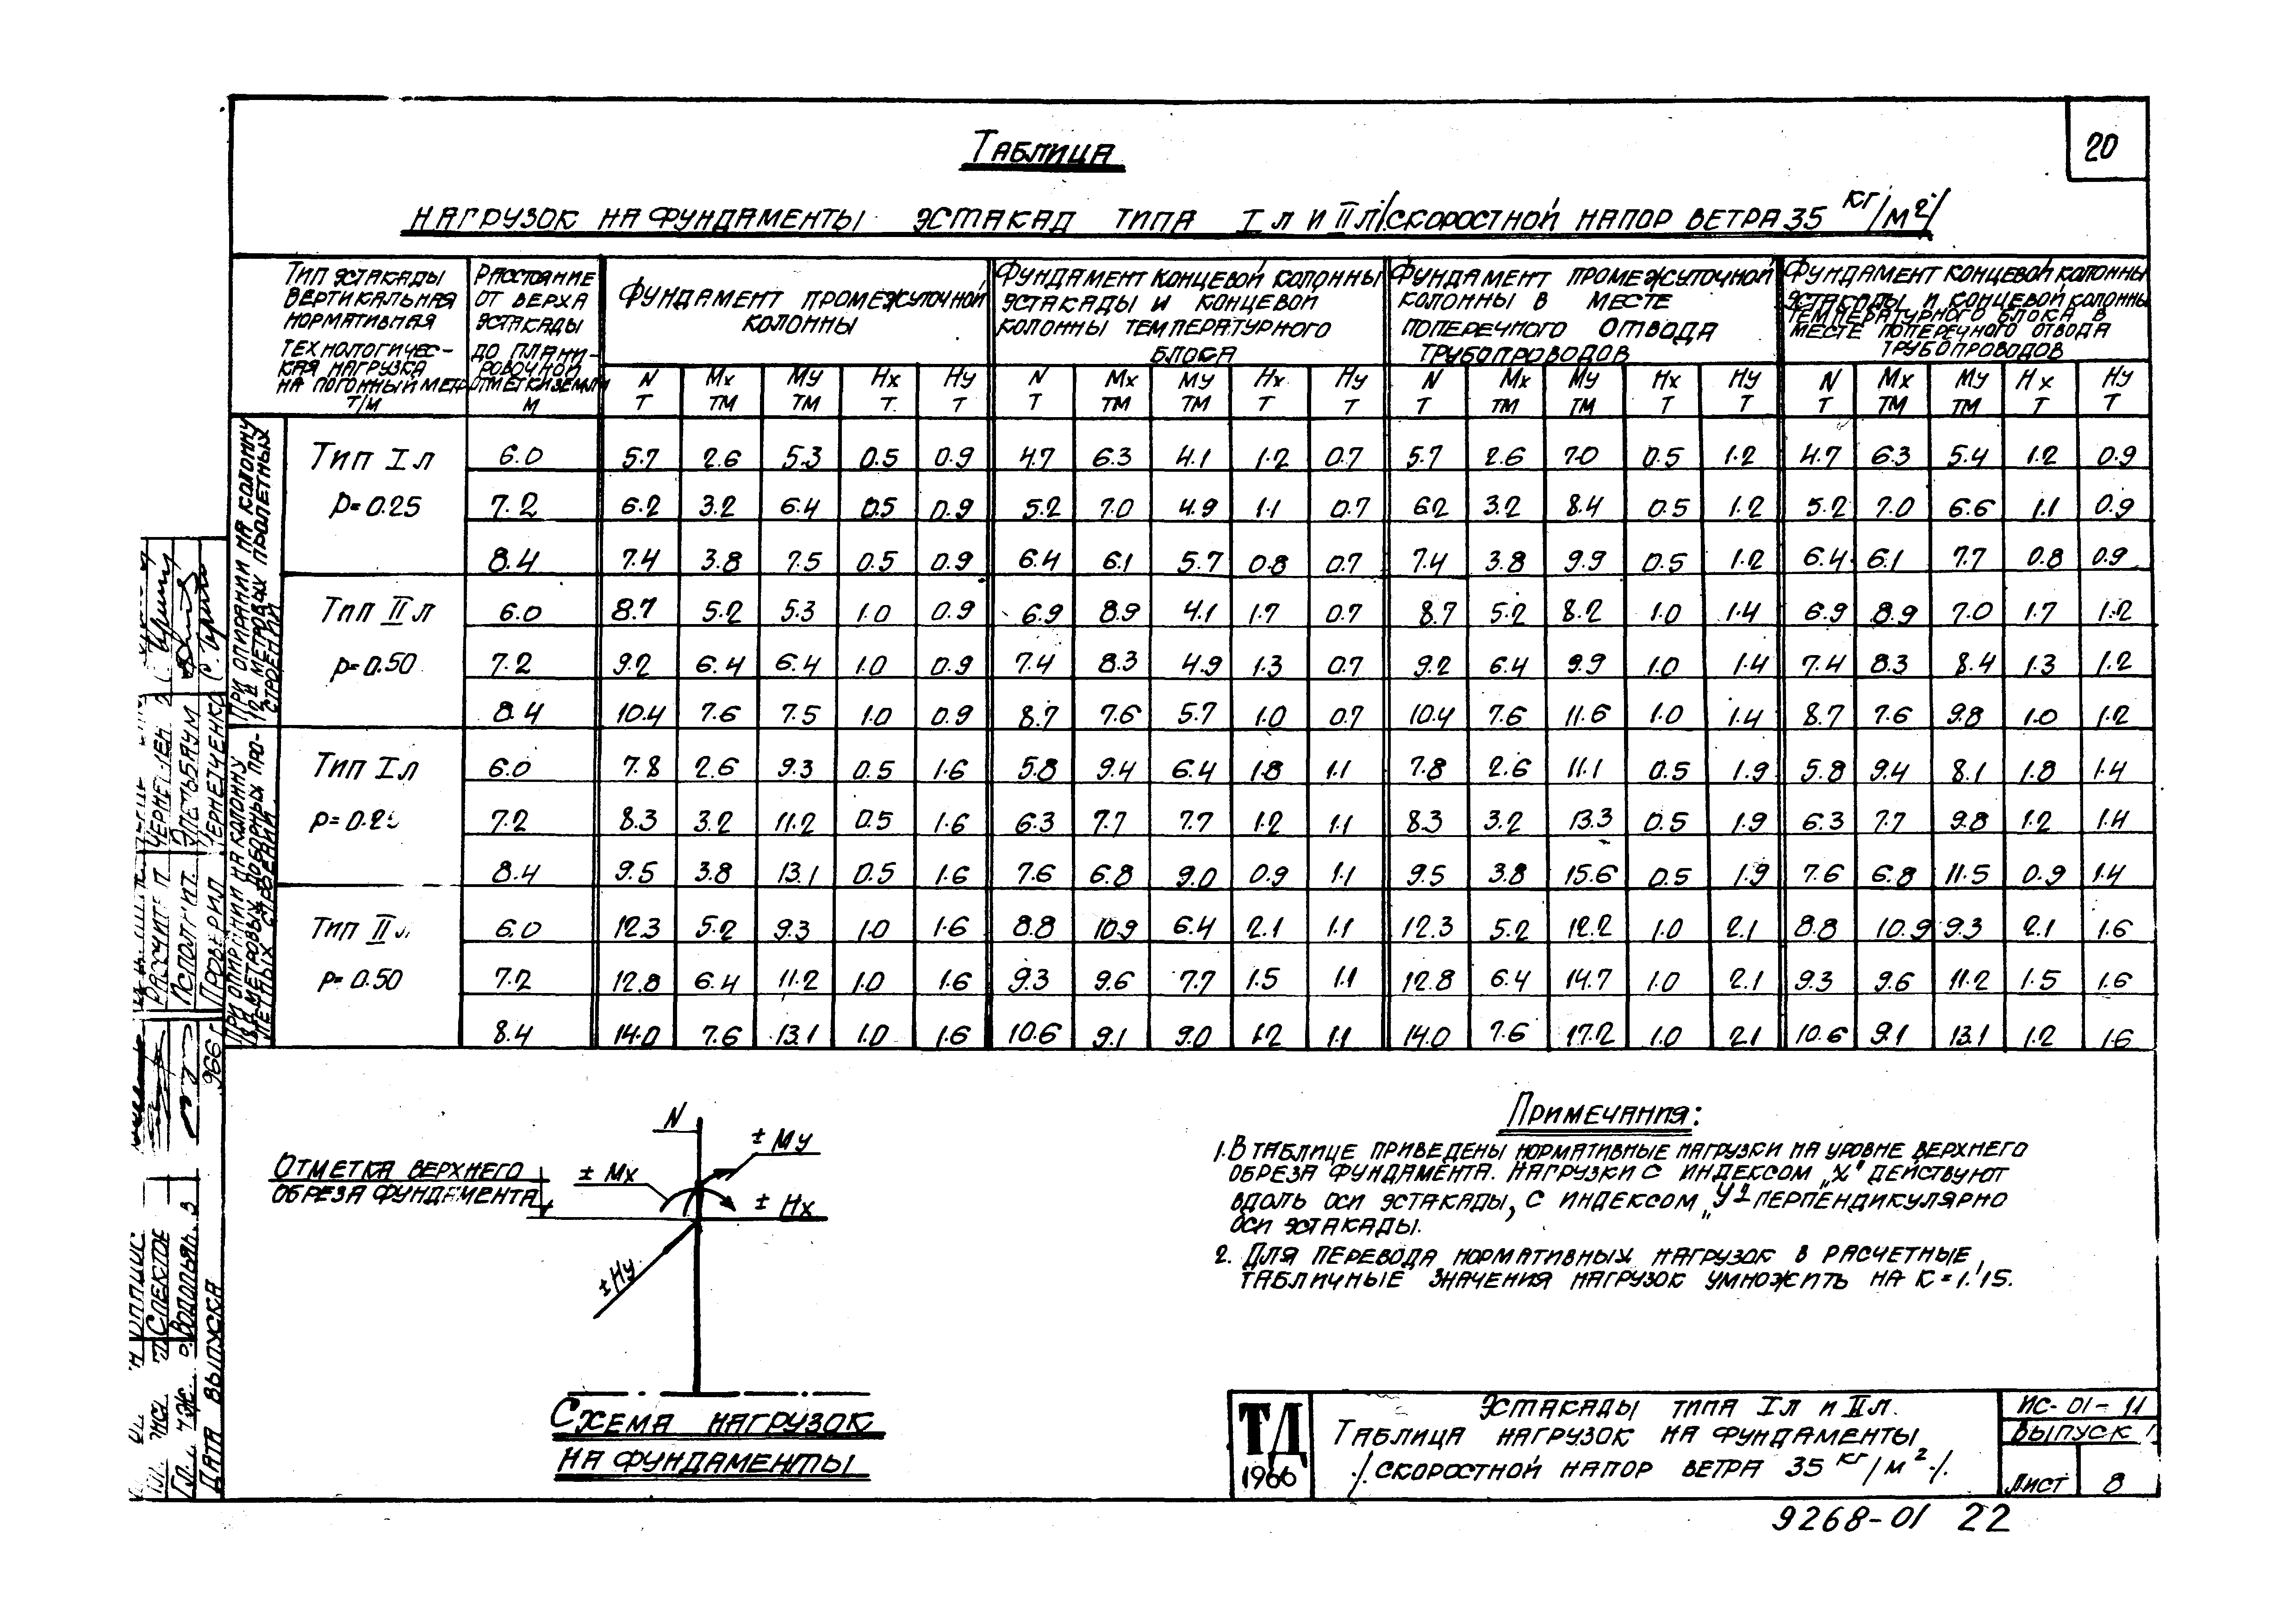 20
Таблица
нагрузок на фундаменты эстакад типа Iл и IIл /скоростной напор ветра 35 кг/м²/
Тип эстакады вертикальная нормативная технологическая нагрузка на погонный метр т/м
Расстояние от верха эстакады до планировочной отметки земли м
Фундамент промежуточной колонны
Фундамент концевой колонны эстакады и концевой колонны температурного блока
Фундамент промежуточной колонны в месте поперечного отвода трубопроводов
Фундамент концевой колонны эстакады и концевой колонны температурного блока в месте поперечного отвода трубопроводов
N Mx My Hx Hy N Mx My Hx Hy N Mx My Hx Hy N Mx My Hx Hy
т тм тм т. т т тм тм т т т тм тм т т т тм тм т т
При опирании на колонну 12и метровых пролетных строений
Тип Iл 6.0 5.7 2.6 5.3 0.5 0.9 4.7 6.3 4.1 1.2 0.7 5.7 2.6 7.0 0.5 1.2 4.7 6.3 5.4 1.2 0.9
p=0.25 7.2 6.2 3.2 6.4 0.5 0.9 5.2 7.0 4.9 1.1 0.7 6.2 3.2 8.4 0.5 1.2 5.2 7.0 6.6 1.1 0.9
8.4 7.4 3.8 7.5 0.5 0.9 6.4 6.1 5.7 0.8 0.7 7.4 3.8 9.9 0.5 1.2 6.4 6.1 7.7 0.8 0.9
Тип IIл 6.0 8.7 5.2 5.3 1.0 0.9 6.9 8.9 4.1 1.7 0.7 8.7 5.2 8.2 1.0 1.4 6.9 8.9 7.0 1.7 1.2
p=0.50 7.2 9.2 6.4 6.4 1.0 0.9 7.4 8.3 4.9 1.3 0.7 9.2 6.4 9.9 1.0 1.4 7.4 8.3 8.4 1.3 1.2
8.4 10.4 7.6 7.5 1.0 0.9 8.7 7.6 5.7 1.0 0.7 10.4 7.6 11.6 1.0 1.4 8.7 7.6 9.8 1.0 1.2
При опирании на колонну метровых доборных пролетных строений
Тип Iл 6.0 7.8 2.6 9.3 0.5 1.6 5.8 9.4 6.4 1.8 1.1 7.8 2.6 11.1 0.5 1.9 5.8 9.4 8.1 1.8 1.4
p=0.25 7.2 8.3 3.2 11.2 0.5 1.6 6.3 7.7 7.7 1.2 1.1 8.3 3.2 13.3 0.5 1.9 6.3 7.7 9.8 1.2 1.4
8.4 9.5 3.8 13.1 0.5 1.6 7.6 6.8 9.0 0.9 1.1 9.5 3.8 15.6 0.5 1.9 7.6 6.8 11.5 0.9 1.4
Тип IIл 6.0 12.3 5.2 9.3 1.0 1.6 8.8 10.9 6.4 2.1 1.1 12.3 5.2 12.2 1.0 2.1 8.8 10.9 9.3 2.1 1.6
p=0.50 7.2 12.8 6.4 11.2 1.0 1.6 9.3 9.6 7.7 1.5 1.1 12.8 6.4 14.7 1.0 2.1 9.3 9.6 11.2 1.5 1.6
8.4 14.0 7.6 13.1 1.0 1.6 10.6 9.1 9.0 1.2 1.1 14.0 7.6 17.2 1.0 2.1 10.6 9.1 13.1 1.2 1.6
N
± My
± Mx
± Hx
± Hy
Отметка верхнего
обреза фундамента
Схема нагрузок
на фундаменты
Примечания:
1. В таблице приведены нормативные нагрузки на уровне верхнего
обреза фундамента. Нагрузки с индексом „X" действуют
вдоль оси эстакады, с индексом „У" перпендикулярно
оси эстакады.
2. Для перевода нормативных нагрузок в расчетные,
табличные значения нагрузок умножить на К=1.15.
ТД
1966
Эстакады типа Iл и IIл.
Таблица нагрузок на фундаменты
/скоростной напор ветра 35 кг/м²./
ИС-01-11
Выпуск 1
Лист 8
9268-01 22
Исполнит.
Проверил Чернетченко
Дата выпуска
966г